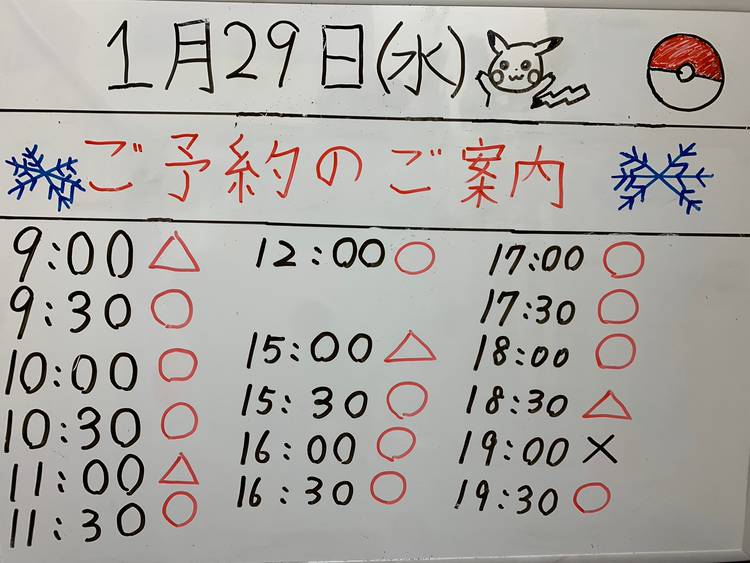 1月29日(水)
ご予約のご案内
9:00 △
9:30 ○
10:00 ○
10:30 ○
11:00 △
11:30 ○
12:00 ○
15:00 △
15:30 ○
16:00 ○
16:30 ○
17:00 ○
17:30 ○
18:00 ○
18:30 △
19:00 ×
19:30 ○